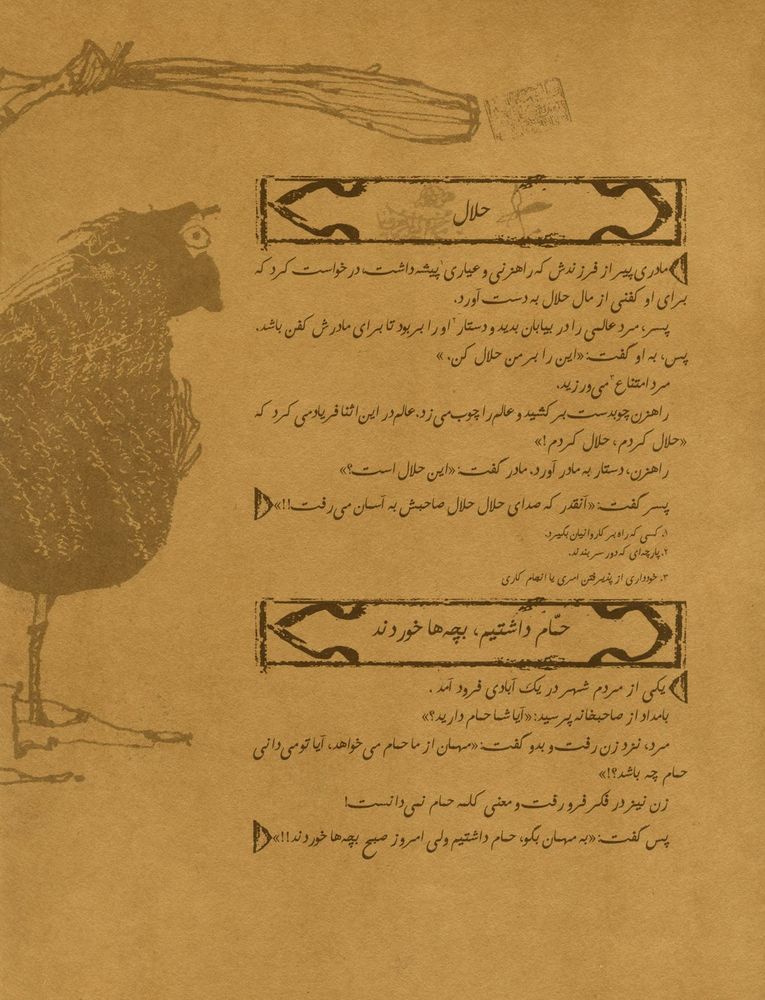 حلال
مادری پیر از فرزندش که راهزنی و عیاری۱ پیشه داشت، درخواست کرد که
برای او کفنی از مال حلال به دست آورد.
پسر، مرد عالمی را در بیابان بدید و دستار۲ او را بربود تا برای مادرش کفن باشد.
پس، به او گفت: «این را بر من حلال کن. »
مرد امتناع۳ می‌ورزید.
راهزن چوبدست برکشید و عالم را چوب می‌زد. عالم در این اثنا فریاد می کرد که
«حلال کردم، حلال کردم!»
راهزن، دستار به مادر آورد. مادر گفت: «این حلال است؟»
پسر گفت: «آنقدر که صدای حلال حلال صاحبش به آسمان می‌رفت!!»
۱. کسی که راه بر کاروانیان بگیرد.
۲. پارچه‌ای که دور سر بندند.
۳. خودداری از پذیرفتن امری یا انجام کاری
حمّام داشتیم، بچه‌ها خوردند
یکی از مردم شهر در یک آبادی فرود آمد .
بامداد از صاحبخانه پرسید: «آیا شما حمام دارید؟»
مرد، نزد زن رفت و بدو گفت: «مهمان از ما حمام می‌خواهد، آیا تو می‌دانی
حمام چه باشد؟!»
زن نیز در فکر فرو رفت و معنی کلمه حمام نمی‌دانست!
پس گفت: «به مهمان بگو، حمام داشتیم ولی امروز صبح بچه‌ها خوردند!!»